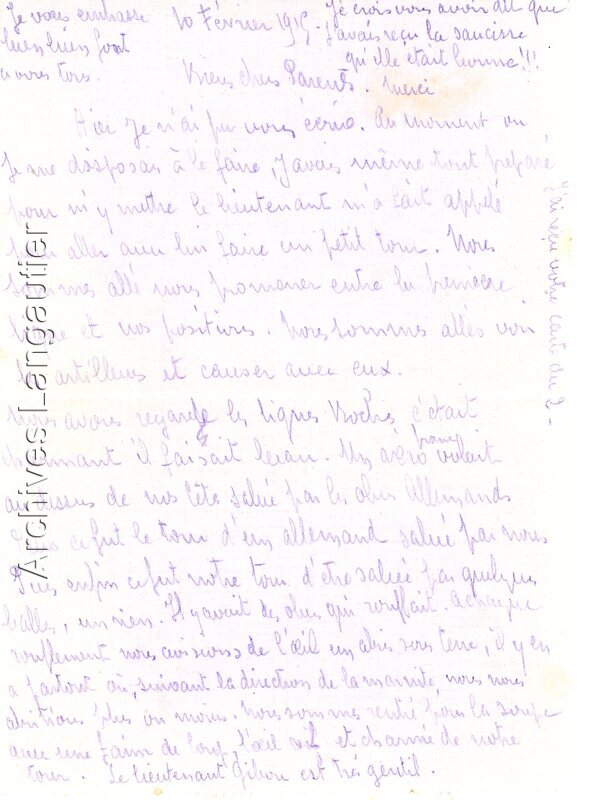 10 Février 1915.
Biens chers Parents.
Hier je n'ai pu vous écrire. Au moment ou
je me disposais à le faire, j'avais même tout préparé
pour m'y mettre le lieutenant m'a fait appelé
pour aller avec lui faire un petit tour. Nous
sommes allé nous promener entre la première
ligne et nos positions. Nous sommes allés voir
les artilleurs et causer avec eux.
Nous avons regardé les lignes Boches c'était
charmant il faisait beau. Un aéro français volait
au dessus de nos têtes salué par les obus Allemands
Puis ce fut le tour d'un allemand salué par nous
Puis enfin ce fut notre tour d'être salué par quelques
balles, un rien. Il y avait des obus qui ronflait. A chaque
ronflement nous avisions de l'œil un abri sous terre, il y en
a partout où, suivant la direction de la marmite, nous nous
abritions plus ou moins. Nous sommes rentré pour la soupe
avec une faim de loup, l'œil et charmé de notre
tour. Le lieutenant Gibon est très gentil.
Je vous embrasse
bien bien fort
à vous tous.
Je crois vous avoir dit que
j'avais reçu la saucisse
qu'elle était bonne!!!
Merci
J'ai reçu votre cart du 2-
Archives Langautier